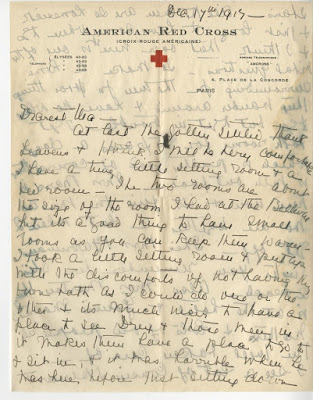 Dec 17th 1917 —
AMERICAN RED CROSS
(CROIX-ROUGE AMÉRICAINE)
ÉLYSÉES
TÉLÉPHONE
4, PLACE DE LA CONCORDE
PARIS
Dearest Ma
At last I've gotten settled thank
heavens & I think I will be very comfortable
I have a tiny little sitting room & a
bed room — The two rooms are about
the size of the room I had at the
but it's a good thing to have small
rooms as you can keep them warm —
I took a little sitting room & put up
with the discomforts of not having my
own bath as I could do one or the
other & its much nicer to have a
place to see & those men in &
it makes them have a place to go to
& sit in, & it was horrible when he
was here before just sitting down in